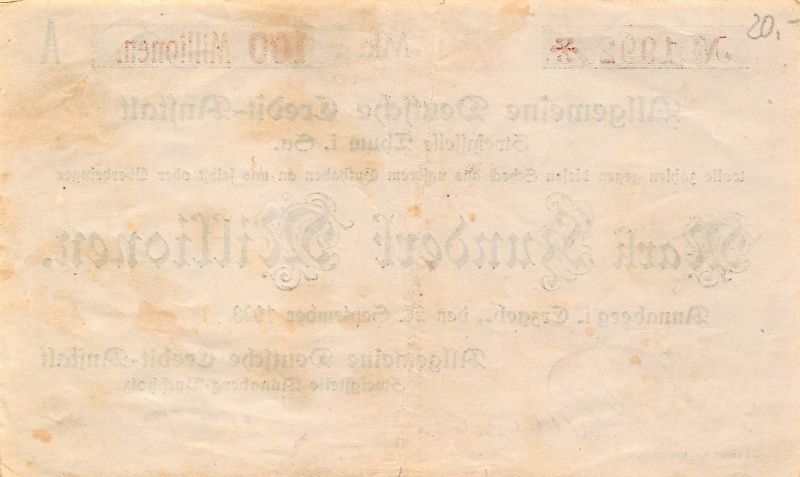 20.-
№ 1992 ✻ Mk. 100 Millionen. A
Allgemeine Deutsche Credit-Anstalt
Thum i. Sa.
wolle zahlen gegen diesen Scheck aus unserem Guthaben an uns selbst oder Überbringer
Mark Hundert Millionen.
Annaberg i. Erzgeb., den September 1923
Allgemeine Deutsche Credit-Anstalt
Zweigstelle Annaberg-Buchholz